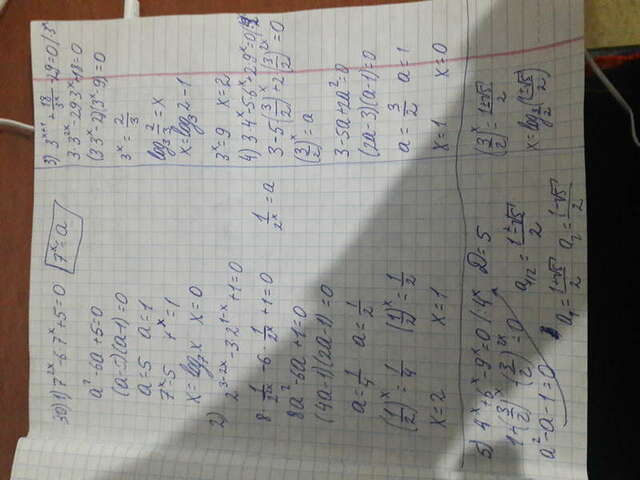 30) 1) 7^{2x} - 6·7^x + 5 = 0   7^x = a
a² - 6a + 5 = 0
(a-5)(a-1) = 0
a = 5   a = 1
7^x = 5   7^x = 1
x = log_7   x = 0
2) 2^{3-2x} - 3·2^{1-x} + 1 = 0
8·1/2^{2x} - 6·1/2^x + 1 = 0   1/2^x = a
8a² - 6a + 1 = 0
(4a-1)(2a-1) = 0
a = 1/4   a = 1/2
(1/2)^x = 1/4   (1/2)^x = 1/2
x = 2   x = 1
3) 3^{x+1} + 18/3^x - 29 = 0 /·3^x
3·3^{2x} - 29·3^x + 18 = 0
(3·3^x - 2)(3^x - 9) = 0
3^x = 2/3
log_3 2/3 = x
x = log_3 2 - 1
3^x = 9   x = 2
4) 3·4^x - 5·6^x + 2·9^x = 0
3 - 5(3/2)^x + 2(3/2)^{2x} = 0
(3/2)^x = a
3 - 5a + 2a² = 0
(2a-3)(a-1) = 0
a = 3/2   a = 1
x = 1   x = 0
5) 4^x + 6^x - 9^x = 0 /:4^x   D = 5
1 + (3/2)^x - (3/2)^{2x} = 0
a² - a - 1 = 0
a_{1/2} = (1±√5)/2
a_1 = (1+√5)/2   a_2 = (1-√5)/2
(3/2)^x = (1±√5)/2
x = log_{3/2} ((1±√5)/2)